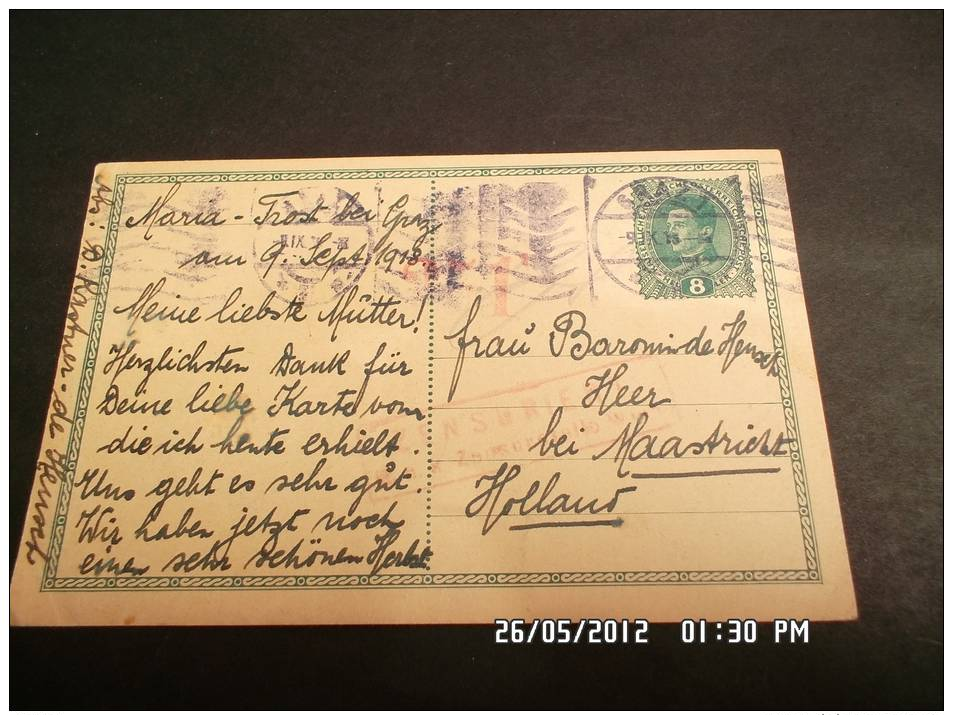 Maria - Trost bei Graz
am 9. Sept. 1918.
Meine liebste Mütter!
Herzlichsten Dank für
Deine liebe Karte vom
die ich heute erhielt.
Uns geht es sehr gut.
Wir haben jetzt noch
einen sehr schönen Herbst.
Frau Baronin de
Heer
bei Maastricht
Holland
ZENSURIERT
8
26/05/2012 01:30 PM